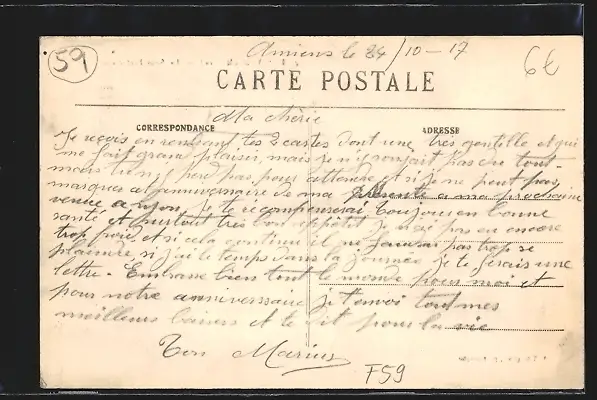 59
Amiens le 24/10-17
6€
CARTE POSTALE
Ma chérie
CORRESPONDANCE
ADRESSE
Je reçois en rentrant tes 2 cartes dont une très gentille et qui
me fait grand plaisir, mais je n'en
pas pour attendre et si je ne peut pas
cet anniversaire de ma présente a ma prochaine
venue a je te récompenserai Toujours en bonne
santé et surtout très bon appétit je n'ai pas eu encore
trop froid et si cela continue il ne faudrai pas trop se
plaindre si j'ai le temps dans la journée je te ferais une
lettre. Embrasse bien tout le monde pour moi et
pour notre anniverssaire je t'envoi tout mes
meilleurs baisers et te dit pour la vie
Ton Marius
F59